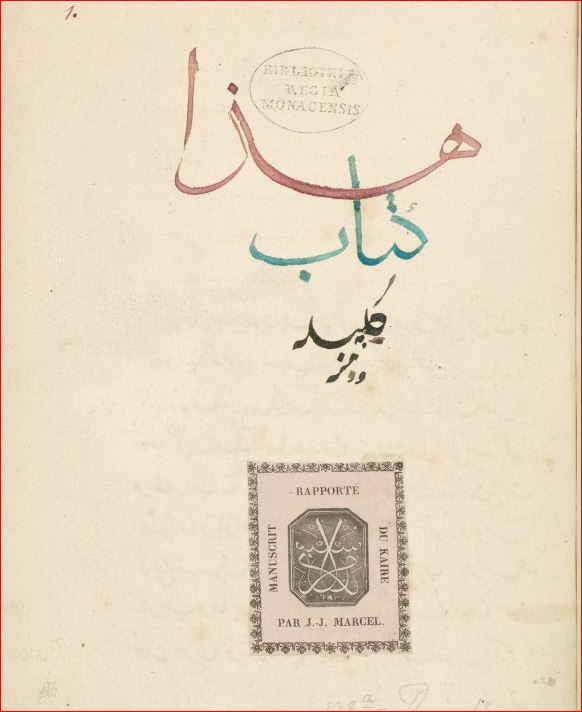 1.
BIBLIOTHECA
REGIA
MONACENSIS
هذا
كتاب
كليله
ودمنه
RAPPORTÉ
MANUSCRIT
DU KAIRE
PAR J.-J. MARCEL.